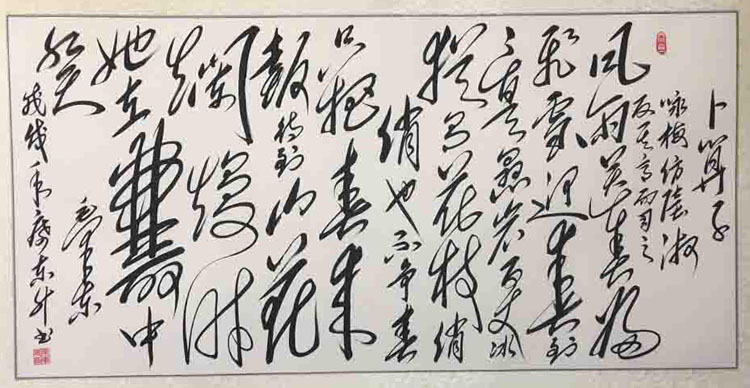 卜算子
咏梅仿陸
反其意而用之
风雨送春归
飞雪迎春到
已是悬崖百丈冰
犹有花枝俏
俏也不争春
只把春来
报待到山花
烂漫时
她在丛中
笑
毛泽东
戊戌年东升书